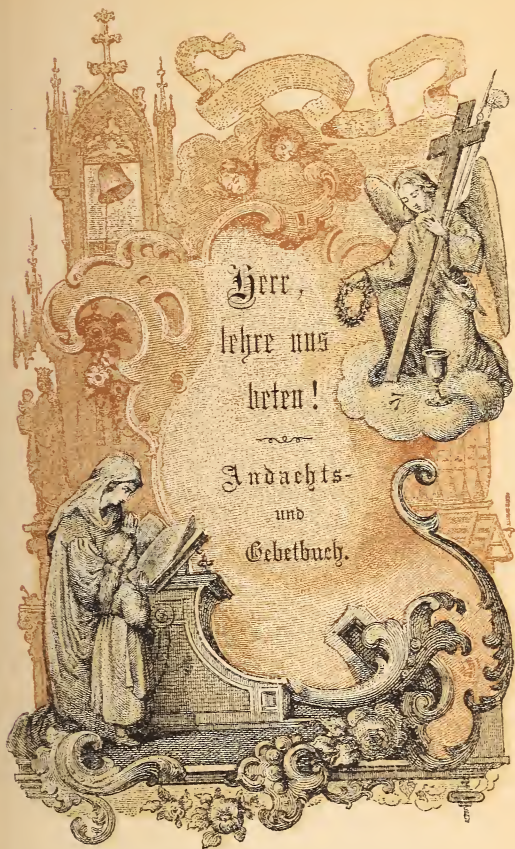 Herr,
lehre uns
beten!
Andachts-
und
Gebetbuch.